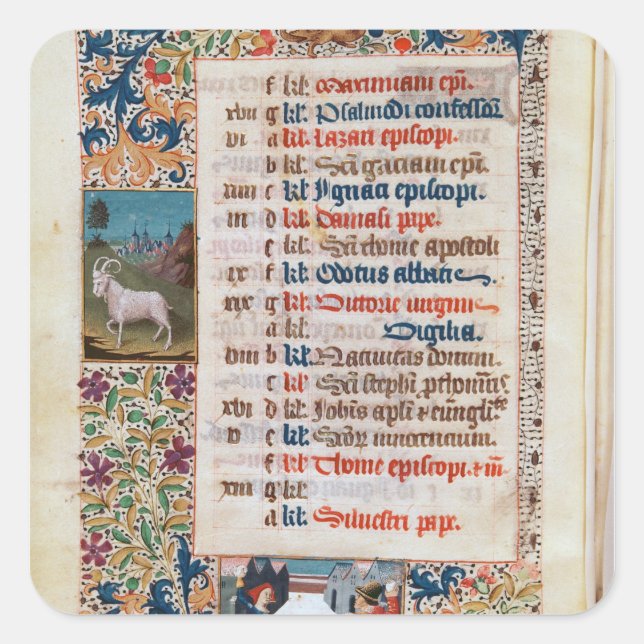 f kł. Maximiani epi.
xvii g kł. Psalmodi confessor
vi a kł. Lazari episcopi.
b kł. Sci graciani epi.
xiiii c kł. Ignaci episcopi.
iii d kł. Damasi pape.
e kł. Sci thome apostoli
xi f kł. Odtus abbatis
xix g kł. Victorie virginis
a kł. Vigilia.
viii b kł. Nativitas domini.
c kł. Sci stephi.
xvi d kł. Johis apli & euugliste
v e kł. Scor innocentum.
f kł. Thome episcopi. & m.
xiii g kł.
a kł. Silvestri pape.